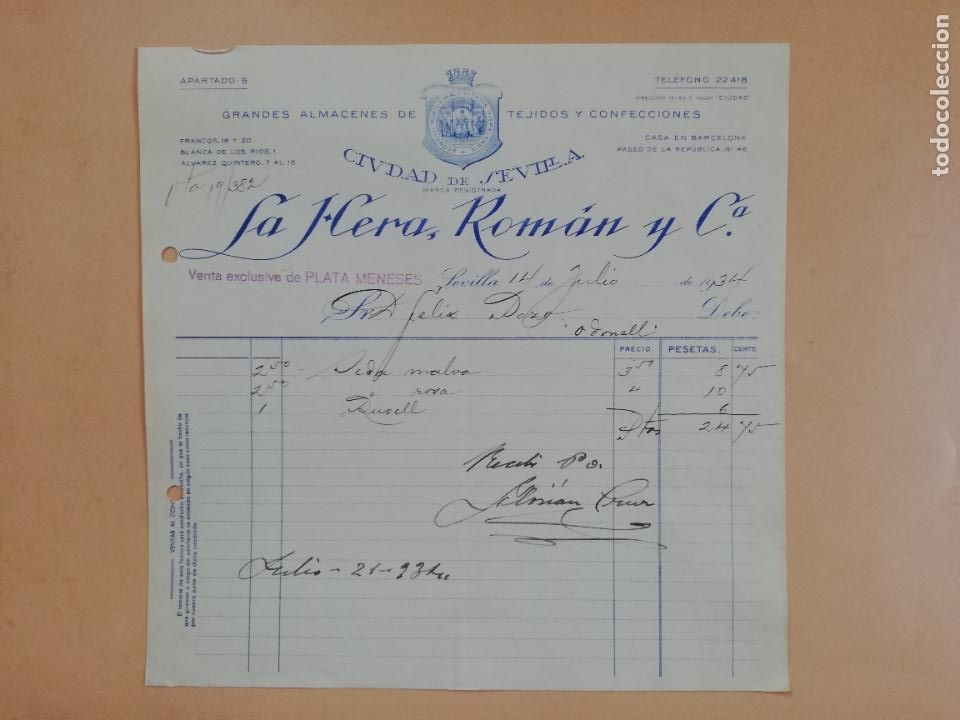 APARTADO-5
TELEFONO: 22418
GRANDES ALMACENES DE TEJIDOS Y CONFECCIONES
FRANCOS, 18 Y 20
BLANCA DE LOS RIOS, 1
ALVAREZ QUINTERO, 7 AL 15
CASA EN BARCELONA
PASEO DE LA REPÚBLICA, Nº 46
CIVDAD DE SEVILLA
MARCA REGISTRADA
La Hera, Román y Cª.
Venta exclusiva de PLATA MENESES
Sevilla 14 de Julio de 1934
Sr. D. Felix Debe:
PRECIO PESETAS. CENTS.
2 50 Seda malva 3 50 8 75
2 50 " rosa 4 10
1 6
Ptas 24 75
Recibi Po.
Julio - 21 - 934
VENTAS AL
todocoleccion.net